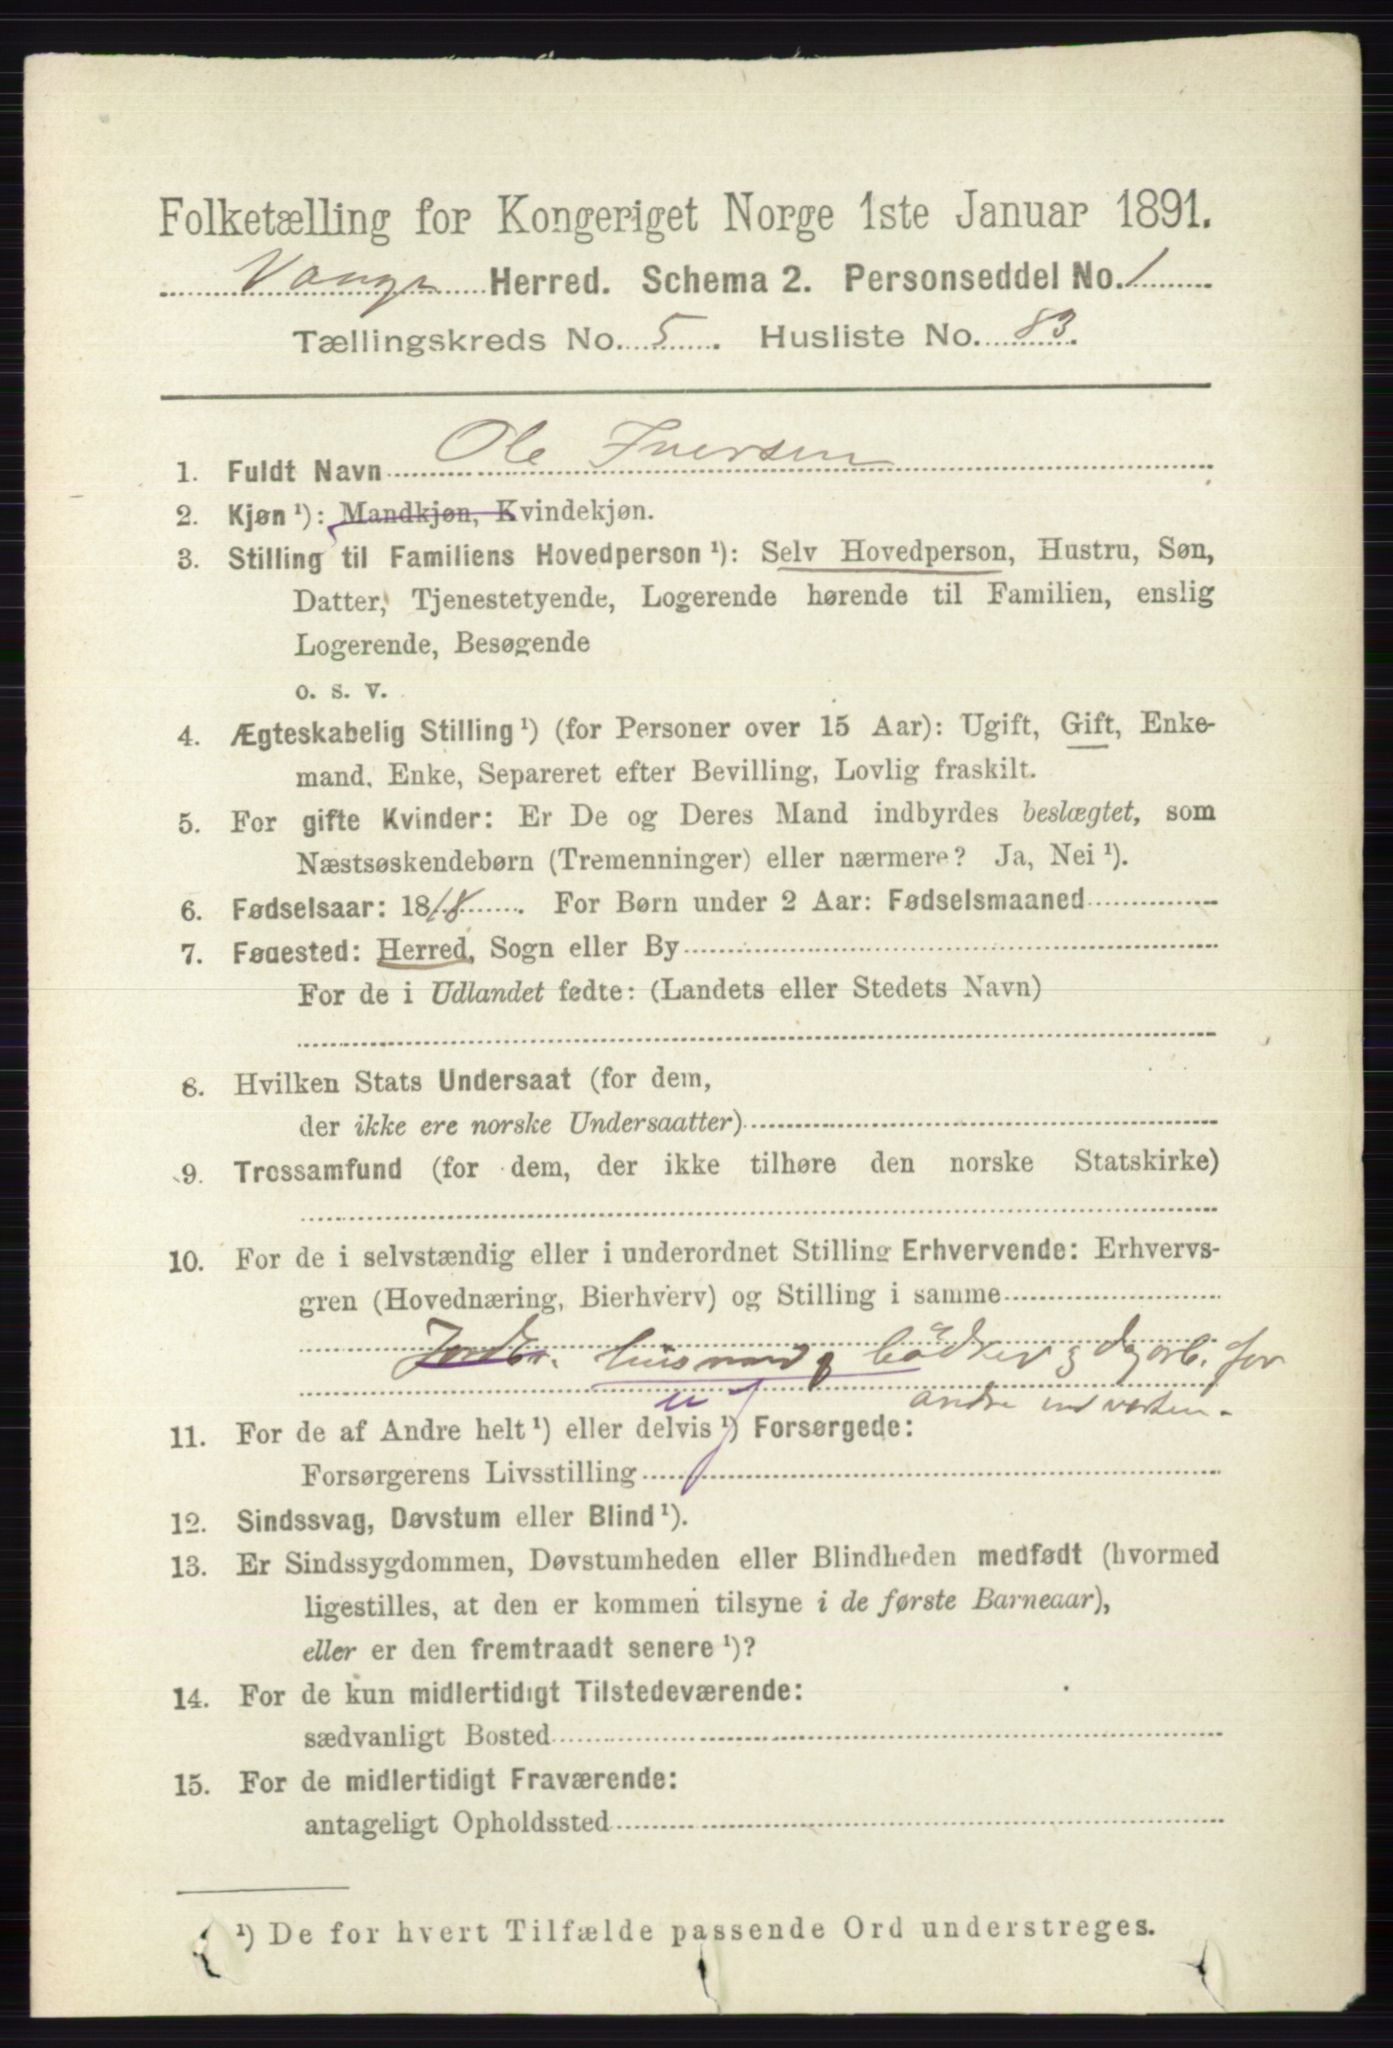 Folketælling for Kongeriget Norge 1ste Januar 1891.
Vangs Herred. Schema 2. Personseddel No. 1
Tællingskreds No. 5. Husliste No. 83.
1. Fuldt Navn Ole Iversen
2. Kjøn ¹): Mandkjøn, Kvindekjøn.
3. Stilling til Familiens Hovedperson ¹): Selv Hovedperson, Hustru, Søn,
Datter, Tjenestetyende, Logerende hørende til Familien, enslig
Logerende, Besøgende
o. s. v.
4. Ægteskabelig Stilling ¹) (for Personer over 15 Aar): Ugift, Gift, Enke-
mand, Enke, Separeret efter Bevilling, Lovlig fraskilt.
5. For gifte Kvinder: Er De og Deres Mand indbyrdes beslægtet, som
Næstsøskendebørn (Tremenninger) eller nærmere? Ja, Nei ¹).
6. Fødselsaar: 1818. For Børn under 2 Aar: Fødselsmaaned
7. Fødested: Herred, Sogn eller By
For de i Udlandet fødte: (Landets eller Stedets Navn)
8. Hvilken Stats Undersaat (for dem,
der ikke ere norske Undersaatter)
9. Trossamfund (for dem, der ikke tilhøre den norske Statskirke)
10. For de i selvstændig eller i underordnet Stilling Erhvervende: Erhvervs-
gren (Hovednæring, Bierhverv) og Stilling i samme
Jordbr. husmand bødker & dagarb. for
andre
11. For de af Andre helt ¹) eller delvis ¹) Forsørgede:
Forsørgerens Livsstilling
12. Sindssvag, Døvstum eller Blind ¹).
13. Er Sindssygdommen, Døvstumheden eller Blindheden medfødt (hvormed
ligestilles, at den er kommen tilsyne i de første Barneaar),
eller er den fremtraadt senere ¹)?
14. For de kun midlertidigt Tilstedeværende:
sædvanligt Bosted
15. For de midlertidigt Fraværende:
antageligt Opholdssted
¹) De for hvert Tilfælde passende Ord understreges.